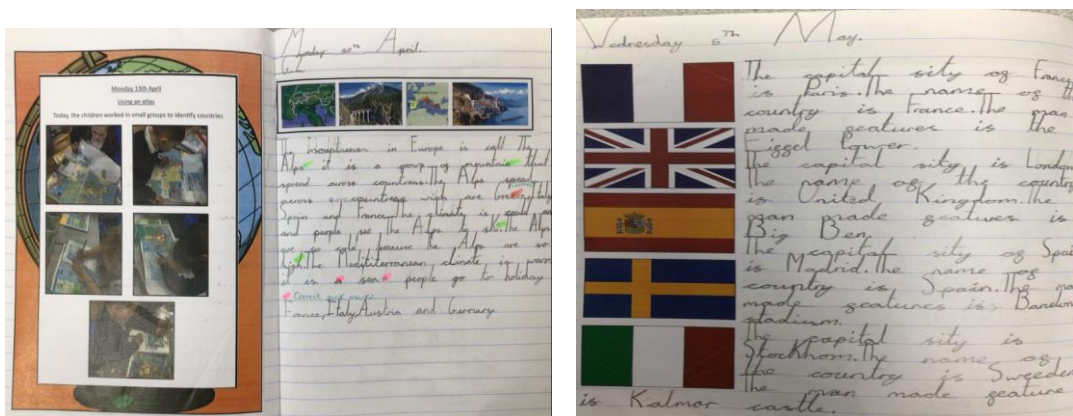 Monday 13th April
Using an atlas
Today, the children worked in small groups to identify countries.
Monday 20th April.
The mountains in Europe is call The
Alps it is a group of mountain that
spread across countries. The Alps spread
across countries wich are Italy
Spain and France. The climate is cold and
and people use the Alps to ski. The Alps
are so cold because the Alps are so
high. The Medititerranean climate is warm
it is a sea people go to holiday
Correct one maps
France, Italy, Austria and Germany
Wednesday 6th May.
The capital sity of France
is Paris. The name of the
country is France. The man
made features is the
Eiffel tower.
The capital sity is London
The name of the country
is United Kingdom. the
man made features is
Big Ben.
The capital sity of Spain
is Madrid. The name of
country is Spain. The man
made features is Barcelona
stadium.
The capital sity is
Stockhom. The name of
the country is Sweeden
The man made feature
is Kalmar castle.